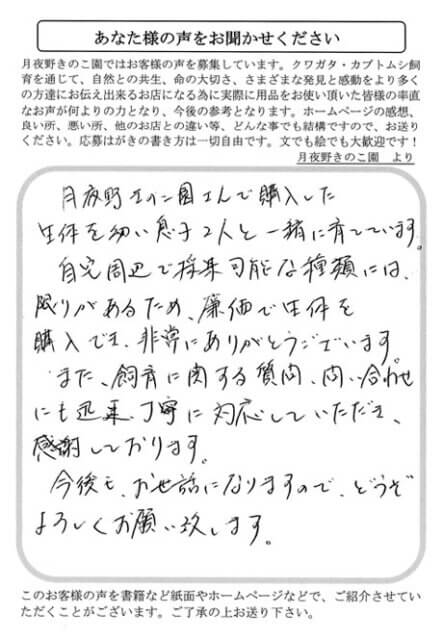 あなた様の声をお聞かせください
月夜野きのこ園ではお客様の声を募集しています。クワガタ・カブトムシ飼
育を通じて、自然との共生、命の大切さ、さまざまな発見と感動をより多く
の方達にお伝え出来るお店になる為に実際に用品をお使い頂いた皆様の率直
なお声が何よりの力となり、今後の参考となります。ホームページの感想、
良い所、悪い所、他のお店との違い等、どんな事でも結構ですので、お送り
ください。応募はがきの書き方は一切自由です。文でも絵でも大歓迎です！
月夜野きのこ園　より
月夜野きのこ園さんで購入した
生体を幼い息子2人と一緒に育てています。
自宅周辺で採集可能な種類には、
限りがあるため、廉価で生体を
購入でき、非常にありがとうございます。
また、飼育に関する質問、問い合わせ
にも迅速、丁寧に対応していただき、
感謝しております。
今後も、お世話になりますので、どうぞ
よろしくお願い致します。
このお客様の声を書籍など紙面やホームページなどで、ご紹介させてい
ただくことがございます。ご了承の上お送り下さい。